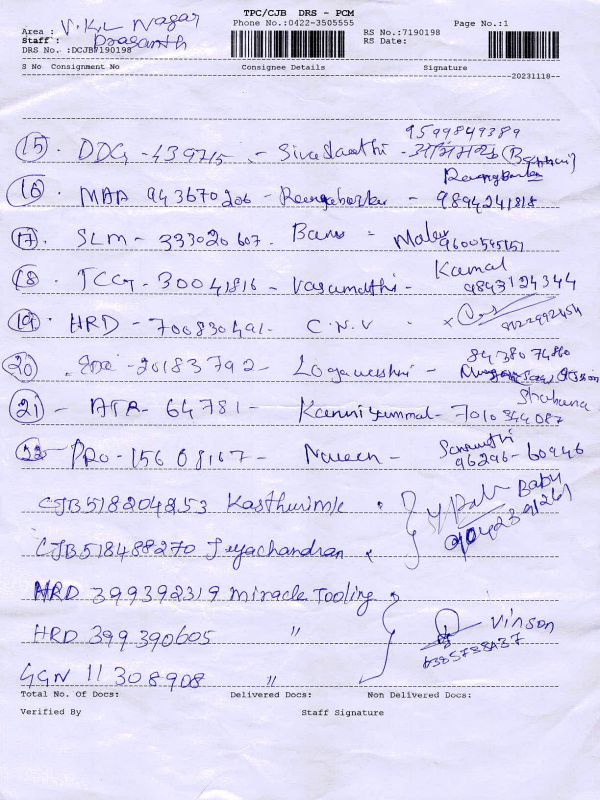 TPC/CJB DRS - PCM
Area : V.K.L Nagar Phone No.:0422-3505555 RS No.:7190198 Page No.:1
Staff : Prasanth RS Date:
DRS No. :DCJB7190198
S No Consignment No Consignee Details Signature
20231118
9599849389
15. DDG - 439715 - Sivasakthi -
16. MAA 943670206 - - 9894241818
17. SLM - 333020607. Banu - 9600545151
18. TCG - 30041816 - Vasumathi - Kamal 9843124344
19. HRD - 700830491 - C.N.V - x
20 - 20183792 - Logaweshri - 8438074860
Shahana
21 - ATR - 64781 - Kanniyammal - 7010344087
22 - PRO - 15608167 - Naveen - 96296-60946
CJB518204253 Kasthurimle Baby
CJB518488270 Jeyachandran
HRD 399392319 Miracle Tooling
HRD 399390605 " Vinson
GGN 11308908 "
Total No. Of Docs: Delivered Docs: Non Delivered Docs:
Verified By Staff Signature